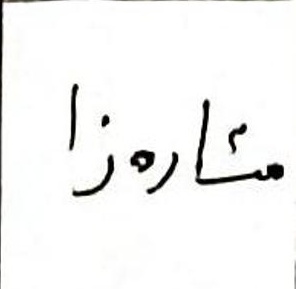 شاره‌زا